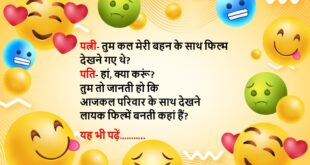 पत्नी- तुम कल मेरी बहन के साथ फिल्म
देखने गए थे?
पति- हां, क्या करूं?
तुम तो जानती हो कि
आजकल परिवार के साथ देखने
लायक फिल्में बनती कहां हैं?
यह भी पढ़ें...........